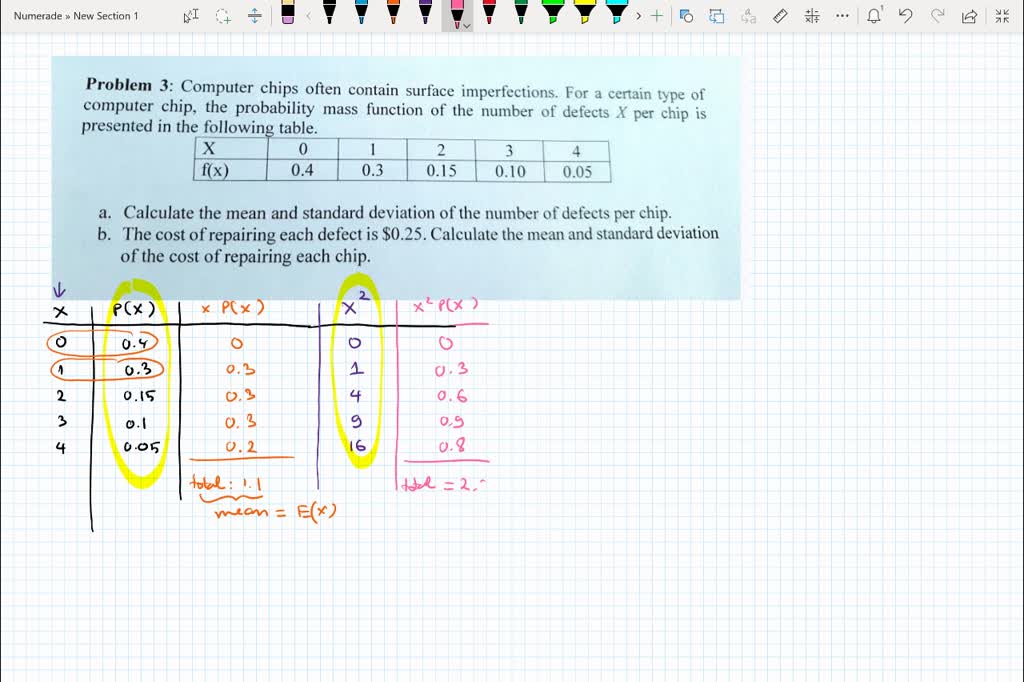 Numerade » New Section 1
Problem 3: Computer chips often contain surface imperfections. For a certain type of
computer chip, the probability mass function of the number of defects X per chip is
presented in the following table.
X 0 1 2 3 4
f(x) 0.4 0.3 0.15 0.10 0.05
a. Calculate the mean and standard deviation of the number of defects per chip.
b. The cost of repairing each defect is $0.25. Calculate the mean and standard deviation
of the cost of repairing each chip.
x P(x) x P(x) x² x² P(x)
0 0.4 0 0 0
1 0.3 0.3 1 0.3
2 0.15 0.3 4 0.6
3 0.1 0.3 9 0.9
4 0.05 0.2 16 0.8
total: 1.1 total = 2.
mean = E(x)